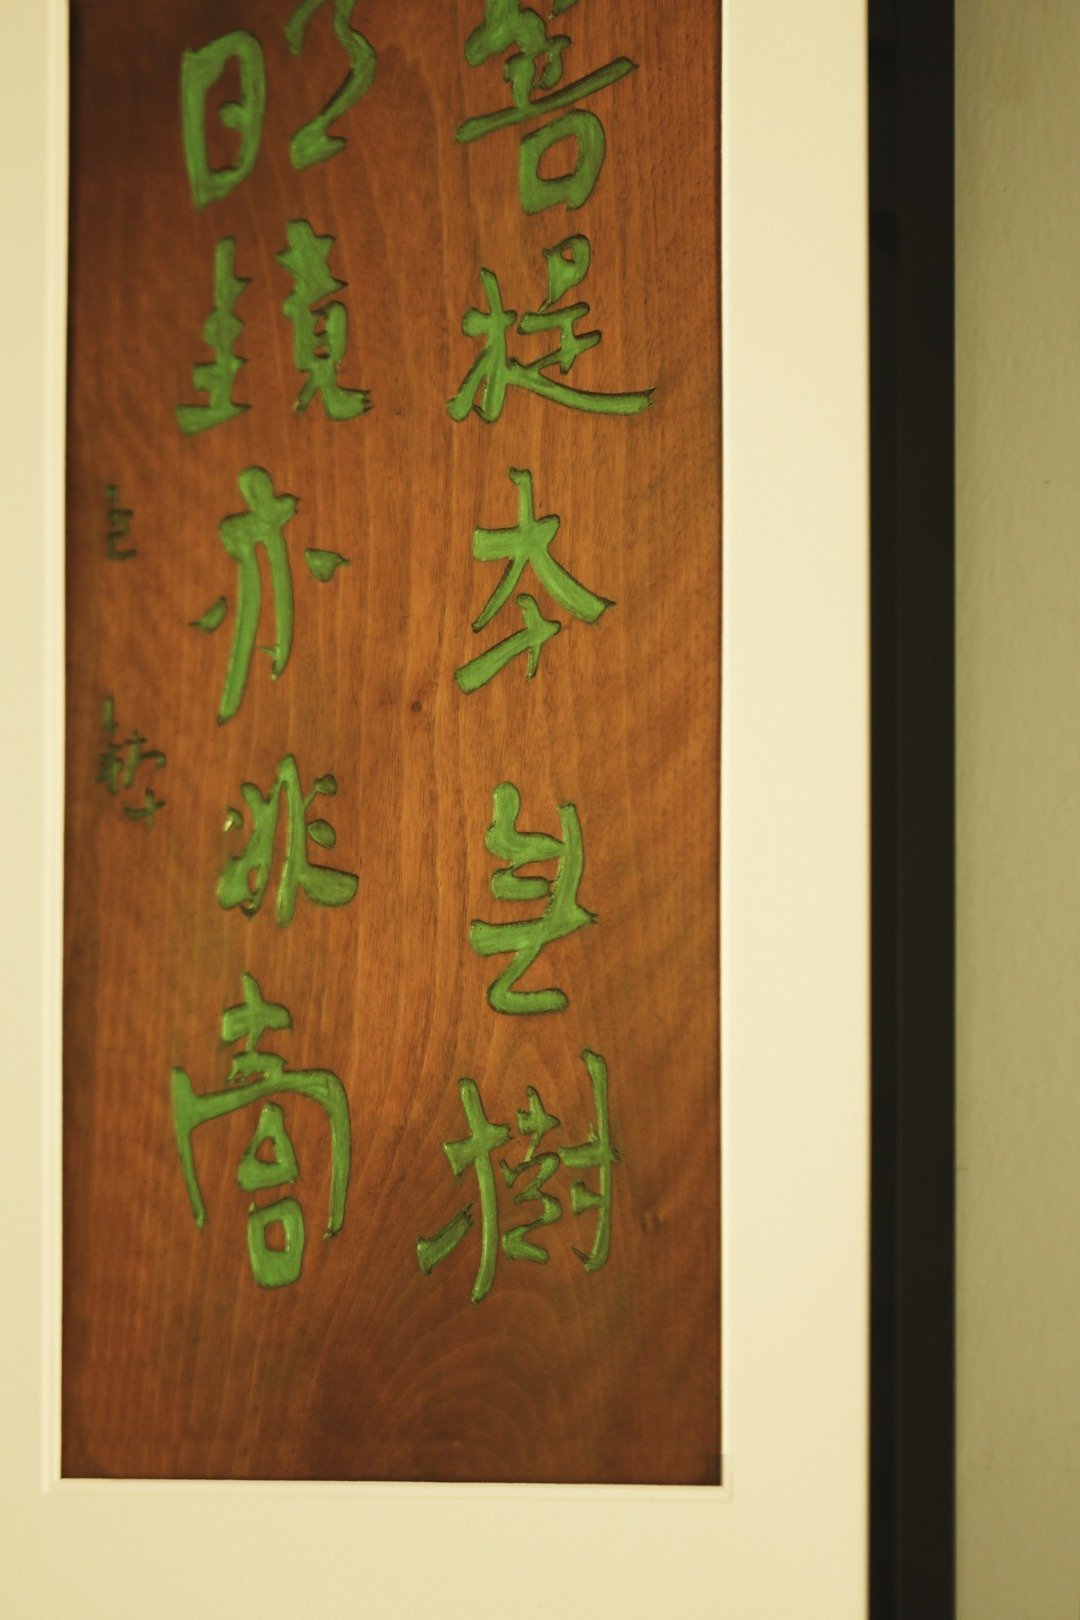 菩提本無樹
明鏡亦非臺